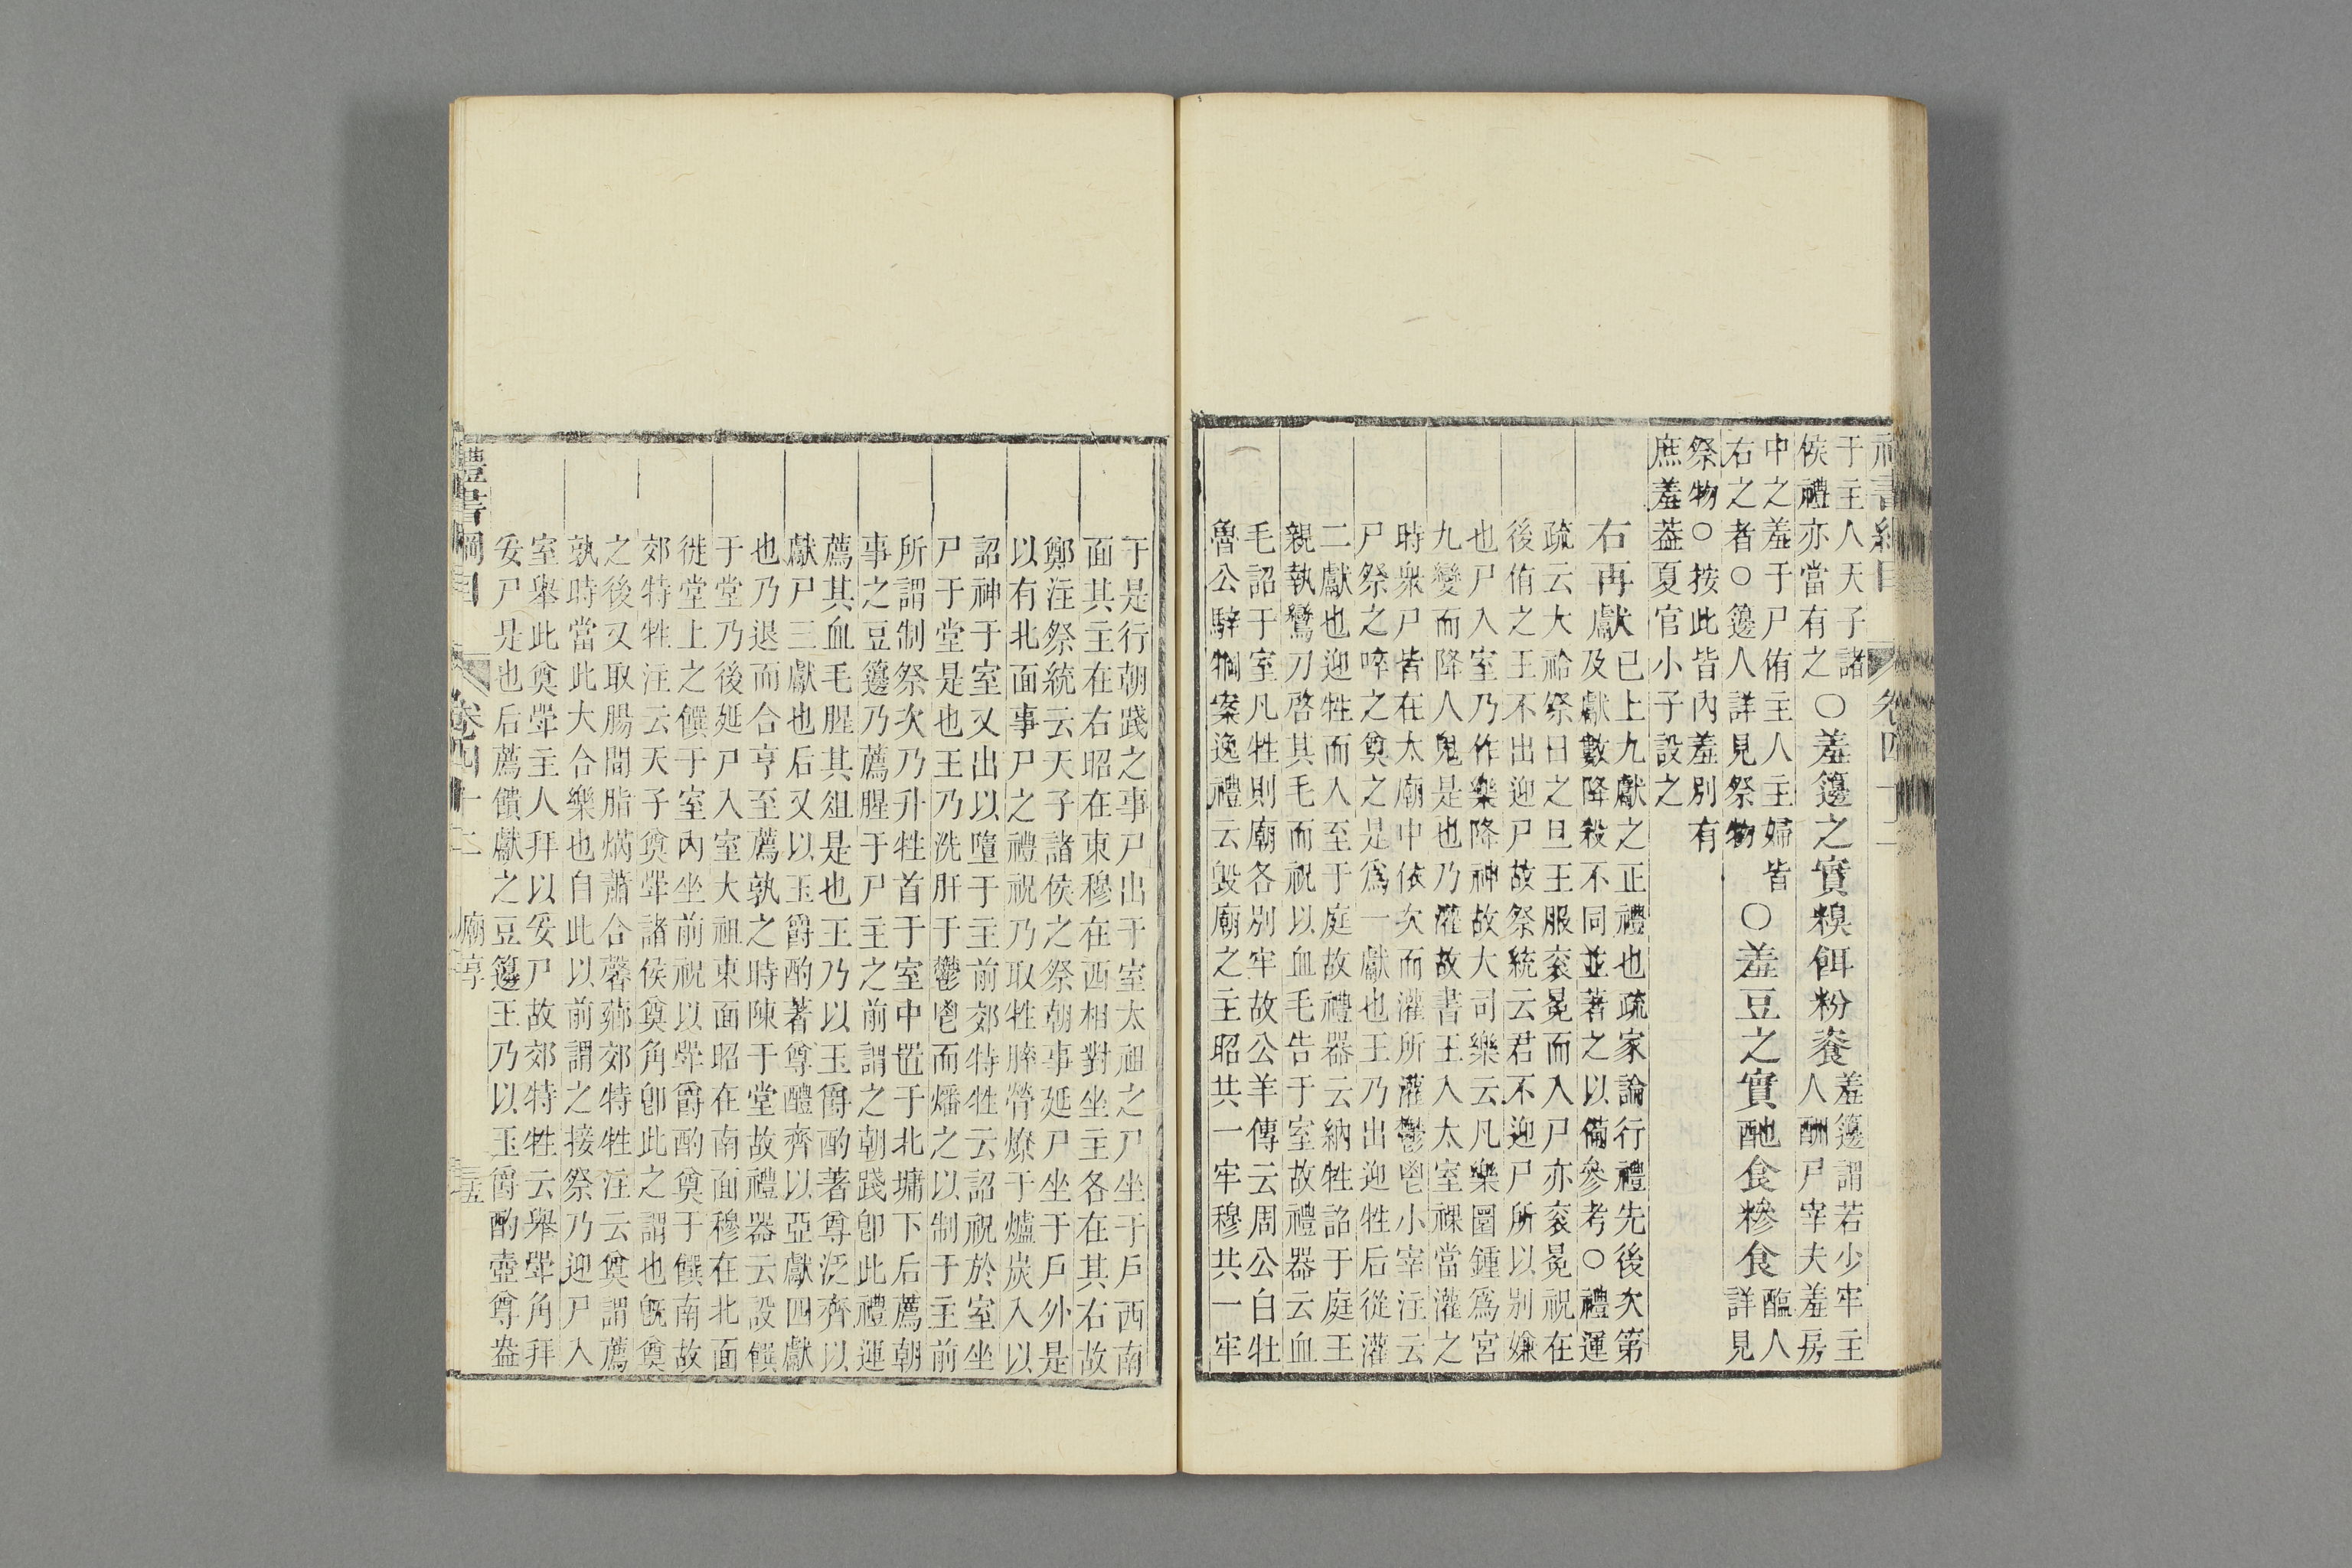 于主人天子諸
侯禮亦當有之
○羞籩之實糗餌粉餈
羞籩謂若少牢主
人酬尸宰夫羞房
中之羞于尸侑主人主婦皆
右之者○籩人詳見祭物
○羞豆之實酏食糝食
醢人
詳見
祭物○按此皆內羞別有
庶羞蓋夏官小子設之
右再獻
已上九獻之正禮也疏家論行禮先後次第
及獻數降殺不同並著之以備參考○禮運
疏云大祫祭日之旦王服衮冕而入尸亦衮冕祝在
後侑之王不出迎尸故祭統云君不迎尸所以別嫌
也尸入室乃作樂降神故大司樂云凡樂圜鍾爲宮
九變而降人鬼是也乃灌故書王入太室祼當灌之
時衆尸皆在太廟中依次而灌所灌鬱鬯小宰注云
尸祭之啐之奠之是爲一獻也王乃出迎牲后從灌
二獻也迎牲而入至于庭故禮器云納牲詔于庭王
親執鸞刀啓其毛而祝以血毛告于室故禮器云血
毛詔于室凡牲則廟各別牢故公羊傳云周公白牡
魯公騂犅案逸禮云毀廟之主昭共一牢穆共一牢
于是行朝踐之事尸出于室太祖之尸坐于戶西南
面其主在右昭在東穆在西相對坐主各在其右故
鄭注祭統云天子諸侯之祭朝事延尸坐于戶外是
以有北面事尸之禮祝乃取牲膟膋燎于爐炭入以
詔神于室又出以墮于主前郊特牲云詔祝於室坐
尸于堂是也王乃洗肝于鬱鬯而燔之以制于主前
所謂制祭次乃升牲首于室中置于北墉下后薦朝
事之豆籩乃薦腥于尸主之前謂之朝踐卽此禮運
薦其血毛腥其俎是也王乃以玉爵酌著尊泛齊以
獻尸三獻也后又以玉爵酌著尊醴齊以亞獻四獻
也乃退而合亨至薦孰之時陳于堂故禮器云設饌
于堂乃後延尸入室大祖東面昭在南面穆在北面
徙堂上之饌于室內坐前祝以斝爵酌奠于饌南故
郊特牲注云天子奠斝諸侯奠角卽此之謂也旣奠
之後又取腸間脂焫蕭合馨薌郊特牲注云奠謂薦
孰時當此大合樂也自此以前謂之接祭乃迎尸入
室舉此奠斝主人拜以妥尸故郊特牲云舉斝角拜
妥尸是也后薦饋獻之豆籩王乃以玉爵酌壺尊盎
禮書綱目 卷四十二 廟享